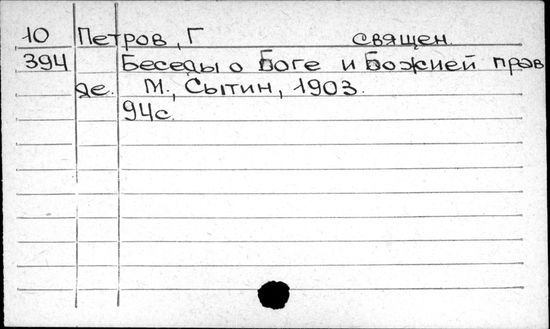 10 Петров, Г священ.
394 Беседы о Боге и Божией прав
де. М., Сытин, 1903.
94с.